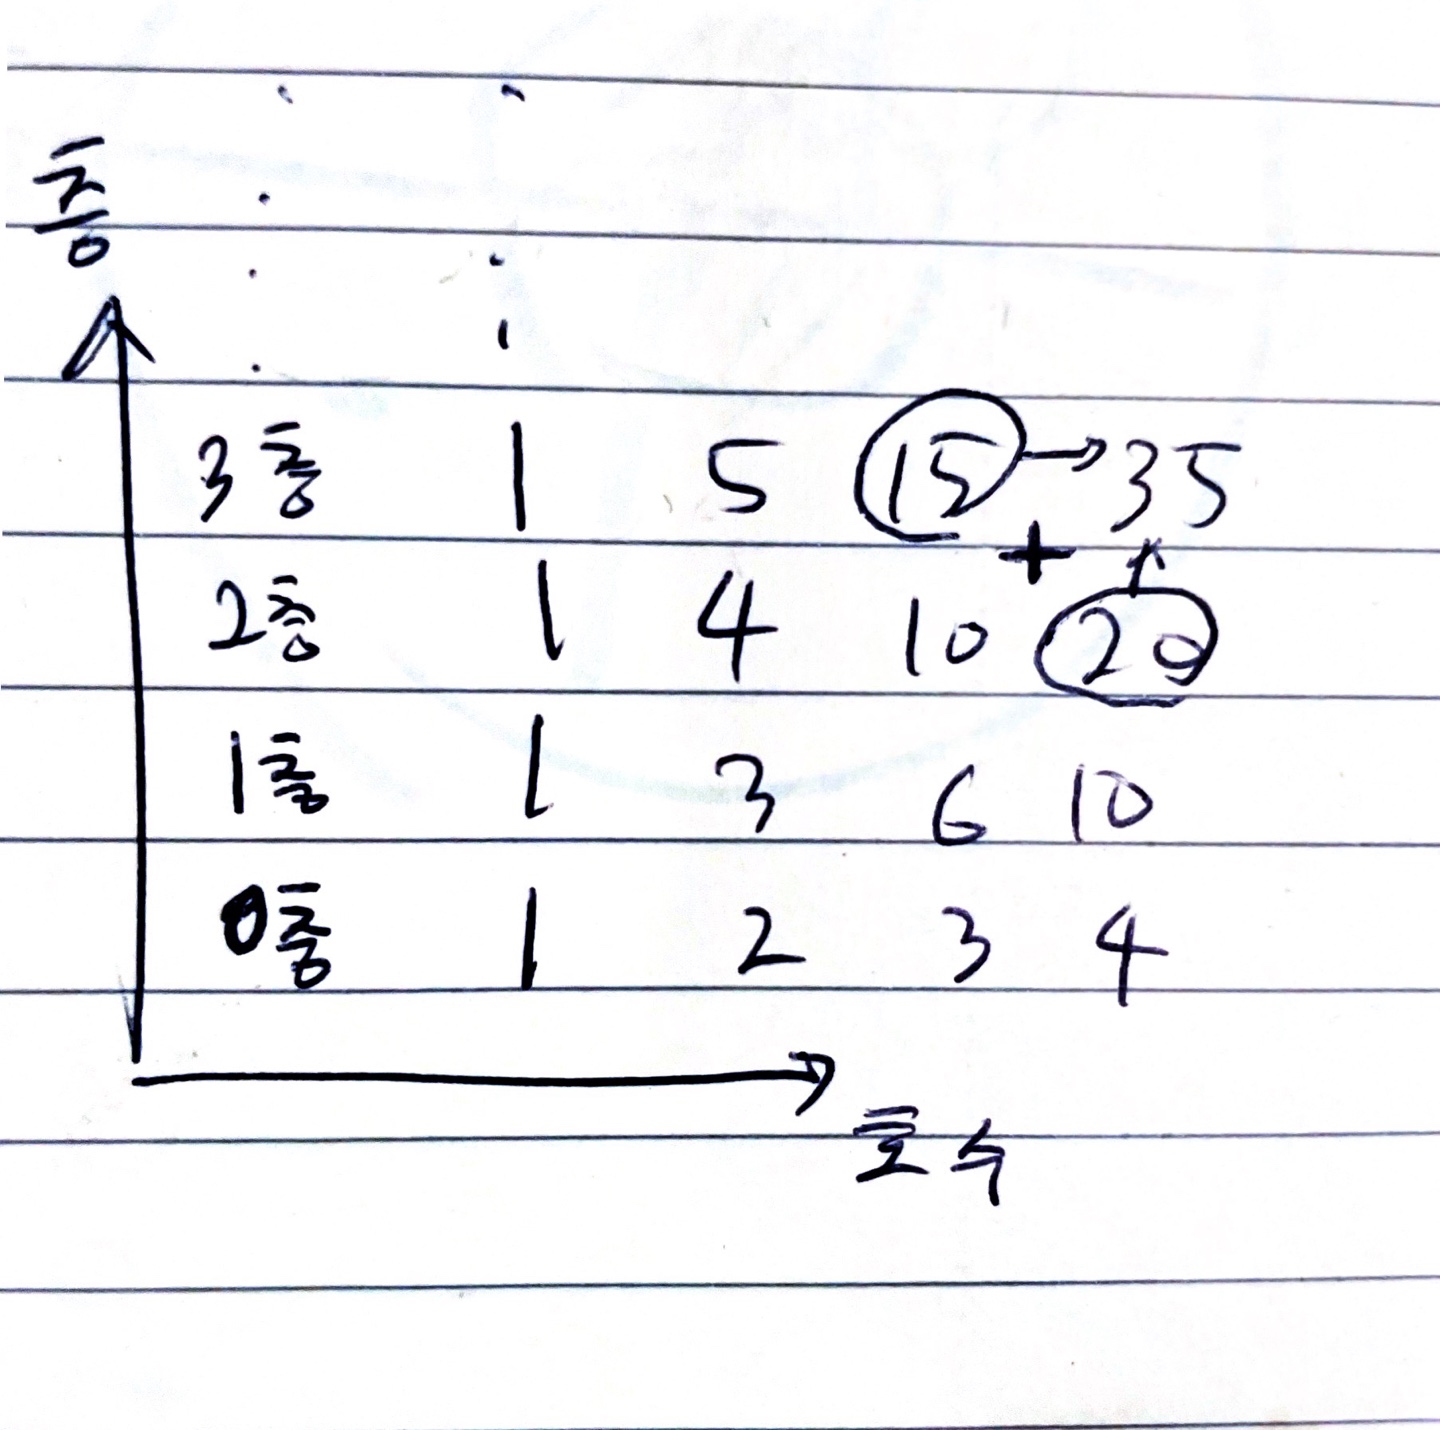 층
3층 1 5 15 → 35
+
2층 1 4 10 20
1층 1 3 6 10
0층 1 2 3 4
호수